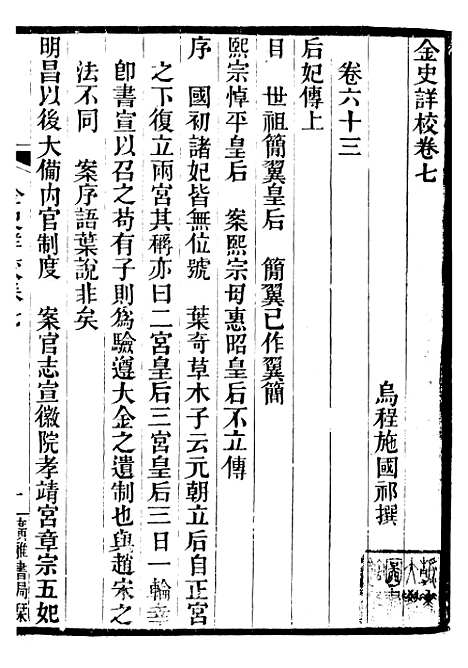 金史詳校卷七
烏程施國祁撰
卷六十三
后妃傳上
目　世祖簡翼皇后　簡翼已作翼簡
熙宗悼平皇后　案熙宗母惠昭皇后不立傳
序　國初諸妃皆無位號　葉奇草木子云元朝立后自正宮
之下復立兩宮其稱亦曰二宮皇后三宮皇后三日一輪幸
卽書宣以召之苟有子則為驗遵大金之遺制也與趙宋之
法不同　案序語葉說非矣
明昌以後大備內官制度　案官志宣徽院孝靖宮章宗五妃
金史詳校卷七
一
廣雅書局栞